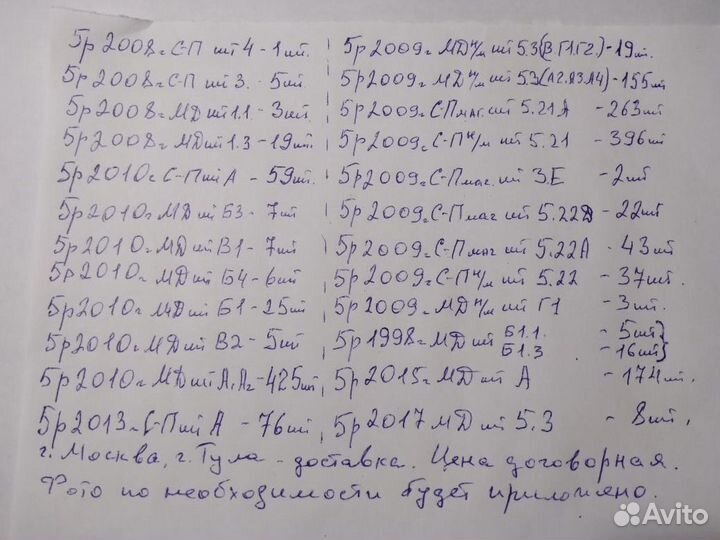 5р 2008г С-П шт 4 - 1шт.
5р 2008г С-П шт 3. - 5шт
5р 2008г МД шт 1.1 - 3шт
5р 2008г МД шт 1.3 - 19шт
5р 2010г С-П шт А - 59шт.
5р 2010г МД шт Б3 - 7шт
5р 2010г МД шт В1 - 7шт
5р 2010г МД шт Б4 - 6шт
5р 2010г МД шт Б1 - 25шт
5р 2010г МД шт В2 - 5шт
5р 2010г МД шт А1А2 - 425шт
5р 2013г С-П шт А - 76шт
5р 2009г МД н/м шт 5.3(В.Г1.Г2.) - 19шт.
5р 2009г МД н/м шт 5.3(А2.А3.А4) - 155шт
5р 2009г С-П маг. шт 5.21А - 263шт
5р 2009г С-П н/м шт 5.21 - 396шт
5р 2009г С-П маг. шт 3.Е - 2шт
5р 2009г С-П маг шт 5.22Д - 22шт
5р 2009г С-П маг шт 5.22А - 43шт
5р 2009г С-П н/м шт 5.22 - 37шт.
5р 2009г МД н/м шт Г1 - 3шт.
5р 1998г МД шт Б1.1. - 5шт}
Б1.3 - 16шт}
5р 2015г МД шт А - 174шт.
5р 2017 МД шт 5.3 - 8шт.
г. Москва, г. Тула - доставка. Цена договорная.
Фото по необходимости будет приложено.
Avito